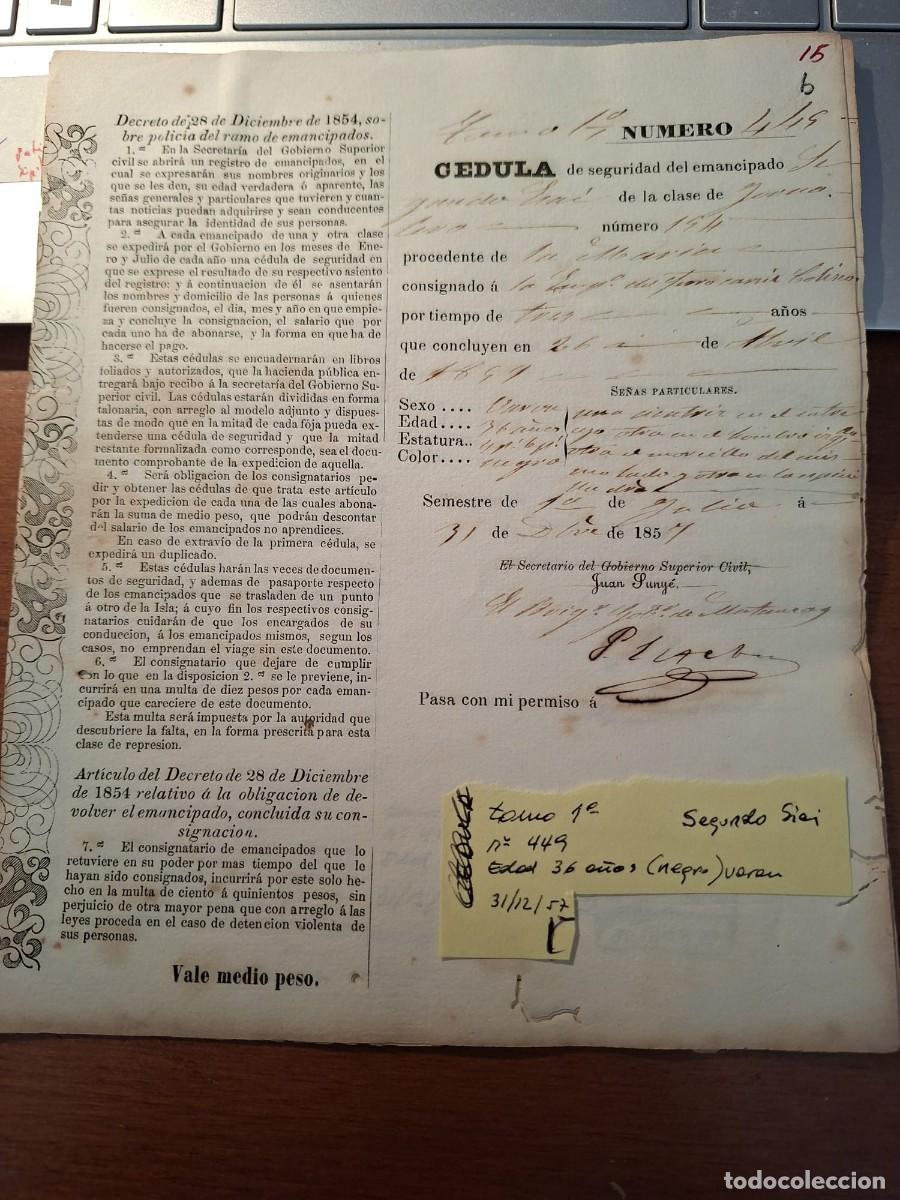 15
6
Decreto de 28 de Diciembre de 1854, so-
bre policia del ramo de emancipados.
1.ª En la Secretaría del Gobierno Superior
civil se abrirá un registro de emancipados, en el
cual se expresarán sus nombres originarios y los
que se les den, su edad verdadera ó aparente, las
señas generales y particulares que tuvieren y cuan-
tas noticias puedan adquirirse y sean conducentes
para asegurar la identidad de sus personas.
2.ª A cada emancipado de una y otra clase
se expedirá por el Gobierno en los meses de Ene-
ro y Julio de cada año una cédula de seguridad en
que se exprese el resultado de su respectivo asiento
del registro: y á continuacion de él se asentarán
los nombres y domicilio de las personas á quienes
fueren consignados, el dia, mes y año en que empie-
za y concluye la consignacion, el salario que por
cada uno ha de abonarse, y la forma en que ha de
hacerse el pago.
3.ª Estas cédulas se encuadernarán en libros
foliados y autorizados, que la hacienda pública en-
tregará bajo recibo á la secretaría del Gobierno Su-
perior civil. Las cédulas estarán divididas en forma
talonaria, con arreglo al modelo adjunto y dispues-
tas de modo que en la mitad de cada fója pueda ex-
tenderse una cédula de seguridad y que la mitad
restante formalizada como corresponde, sea el docu-
mento comprobante de la expedicion de aquella.
4.ª Será obligacion de los consignatarios pe-
dir y obtener las cédulas de que trata este artículo
por la expedicion de cada una de las cuales abona-
rán la suma de medio peso, que podrán descontar
del salario de los emancipados no aprendices.
En caso de extravío de la primera cédula, se
expedirá un duplicado.
5.ª Estas cédulas harán las veces de documen-
tos de seguridad, y ademas de pasaporte respecto
de los emancipados que se trasladen de un punto
á otro de la Isla; á cuyo fin los respectivos consig-
natarios cuidarán de que los encargados de su
conduccion, á los emancipados mismos, segun los
casos, no emprendan el viage sin este documento.
6.ª El consignatario que dejare de cumplir
con lo que en la disposicion 2.ª se le previene, in-
currirá en una multa de diez pesos por cada eman-
cipado que careciere de este documento.
Esta multa será impuesta por la autoridad que
descubriere la falta, en la forma prescrita para esta
clase de represion.
Artículo del Decreto de 28 de Diciembre
de 1854 relativo á la obligacion de de-
volver el emancipado, concluida su con-
signacion.
7.ª El consignatario de emancipados que lo
retuviere en su poder por mas tiempo del que le
hayan sido consignados, incurrirá por este solo he-
cho en la multa de ciento á quinientos pesos, sin
perjuicio de otra mayor pena que con arreglo á las
leyes proceda en el caso de detencion violenta de
sus personas.
Vale medio peso.
Tomo 1º NUMERO 449
CEDULA de seguridad del emancipado Se
gundo de la clase de Jorna
lero número 154
procedente de la Marina
consignado á la
por tiempo de tres años
que concluyen en 26 de Abril
de 1859
SEÑAS PARTICULARES.
Sexo .... Varon una cicatriz en el entre
Edad .... 36 años otra en el hombro
Estatura.. 4 ps. 6 ps. otra el morcillo del mis
Color .... negro mo lado y otra en la
Semestre de 1º de Julio á
31 de Dbre de 1857
El Secretario del Gobierno Superior Civil,
Juan Sunyé.
El Brigr. Gobr. de Matanzas
Pasa con mi permiso á
tomo 1º Segundo Siei
nº 449
Edad 36 años (negro) varon
31/12/57
todocoleccion